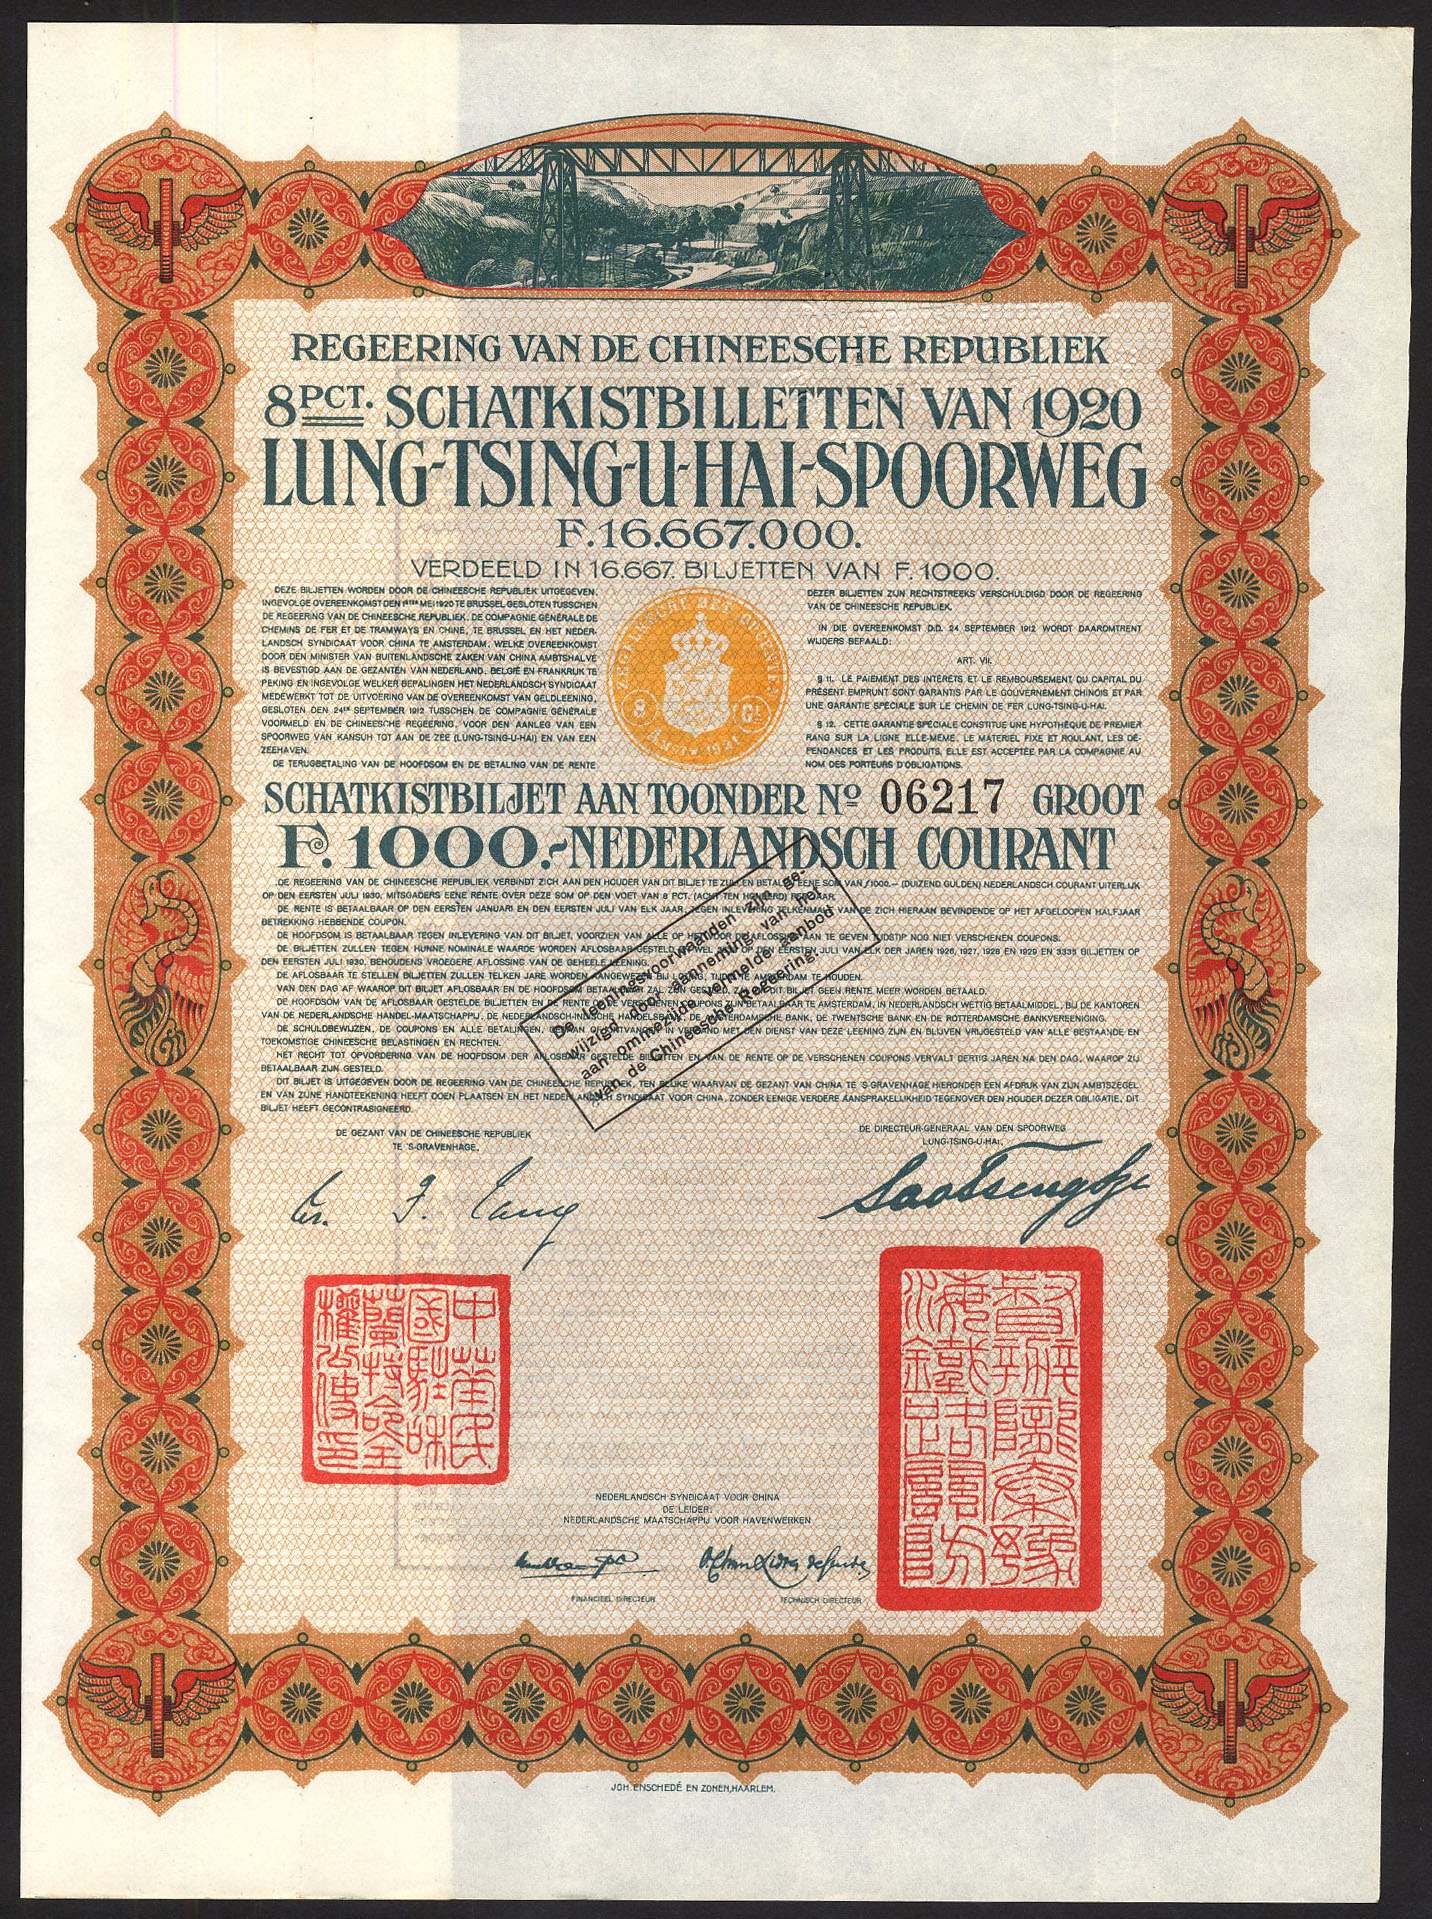 REGEERING VAN DE CHINEESCHE REPUBLIEK
8 PCT. SCHATKISTBILLETTEN VAN 1920
LUNG-TSING-U-HAI-SPOORWEG
F. 16.667.000.
VERDEELD IN 16.667. BILJETTEN VAN F. 1000.
DEZE BILJETTEN WORDEN DOOR DE CHINEESCHE REPUBLIEK UITGEGEVEN,
INGEVOLGE OVEREENKOMST DEN 1STEN MEI 1920 TE BRUSSEL GESLOTEN TUSSCHEN
DE REGEERING VAN DE CHINEESCHE REPUBLIEK, DE COMPAGNIE GÉNÉRALE DE
CHEMINS DE FER ET DE TRAMWAYS EN CHINE, TE BRUSSEL EN HET NEDER-
LANDSCH SYNDICAAT VOOR CHINA TE AMSTERDAM, WELKE OVEREENKOMST
DOOR DEN MINISTER VAN BUITENLANDSCHE ZAKEN VAN CHINA AMBTSHALVE
IS BEVESTIGD AAN DE GEZANTEN VAN NEDERLAND, BELGIË EN FRANKRIJK TE
PEKING EN INGEVOLGE WELKER BEPALINGEN HET NEDERLANDSCH SYNDICAAT
MEDEWERKT TOT DE UITVOERING VAN DE OVEREENKOMST VAN GELDLEENING,
GESLOTEN DEN 24EN SEPTEMBER 1912 TUSSCHEN DE COMPAGNIE GÉNÉRALE
VOORMELD EN DE CHINEESCHE REGEERING, VOOR DEN AANLEG VAN EEN
SPOORWEG VAN KANSUH TOT AAN DE ZEE (LUNG-TSING-U-HAI) EN VAN EEN
ZEEHAVEN.
DE TERUGBETALING VAN DE HOOFDSOM EN DE BETALING VAN DE RENTE
DEZER BILJETTEN ZIJN RECHTSTREEKS VERSCHULDIGD DOOR DE REGEERING
VAN DE CHINEESCHE REPUBLIEK.
IN DE OVEREENKOMST D.D. 24 SEPTEMBER 1912 WORDT DAAROMTRENT
WIJDERS BEPAALD:
ART. VII.
§ 11. LE PAIEMENT DES INTÉRÊTS ET LE REMBOURSEMENT DU CAPITAL DU
PRÉSENT EMPRUNT SONT GARANTIS PAR LE GOUVERNEMENT CHINOIS ET PAR
UNE GARANTIE SPÉCIALE SUR LE CHEMIN DE FER LUNG-TSING-U-HAI.
§ 12. CETTE GARANTIE SPÉCIALE CONSTITUE UNE HYPOTHÈQUE DE PREMIER
RANG SUR LA LIGNE ELLE-MÊME, LE MATERIEL FIXE ET ROULANT, LES DÉ-
PENDANCES ET LES PRODUITS, ELLE EST ACCEPTÉE PAR LA COMPAGNIE AU
NOM DES PORTEURS D'OBLIGATIONS.
SCHATKISTBILJET AAN TOONDER No 06217 GROOT
F. 1000.-NEDERLANDSCH COURANT
DE REGEERING VAN DE CHINEESCHE REPUBLIEK VERBINDT ZICH AAN DEN HOUDER VAN DIT BILJET TE ZULLEN BETALEN EENE SOM VAN f1000.— (DUIZEND GULDEN) NEDERLANDSCH COURANT UITERLIJK
OP DEN EERSTEN JULI 1930, MITSGADERS EENE RENTE OVER DEZE SOM OP DEN VOET VAN 8 PCT. (ACHT TEN HONDERD) PER JAAR.
DE RENTE IS BETAALBAAR OP DEN EERSTEN JANUARI EN DEN EERSTEN JULI VAN ELK JAAR, TEGEN INLEVERING TELKENMALE VAN DE ZICH HIERAAN BEVINDENDE OP HET AFGELOOPEN HALFJAAR
BETREKKING HEBBENDE COUPON.
DE HOOFDSOM IS BETAALBAAR TEGEN INLEVERING VAN DIT BILJET, VOORZIEN VAN ALLE OP HET VOOR DE AFLOSSING AAN TE GEVEN TIJDSTIP NOG NIET VERSCHENEN COUPONS.
DE BILJETTEN ZULLEN TEGEN HUNNE NOMINALE WAARDE WORDEN AFLOSBAAR GESTELD, HETWEL 3333 OP DEN EERSTEN JULI VAN ELK DER JAREN 1926, 1927, 1928 EN 1929 EN 3335 BILJETTEN OP
DEN EERSTEN JULI 1930, BEHOUDENS VROEGERE AFLOSSING VAN DE GEHEELE LEENING.
DE AFLOSBAAR TE STELLEN BILJETTEN ZULLEN TELKEN JARE WORDEN AANGEWEZEN BIJ LOTING, TIJDIG TE AMSTERDAM TE HOUDEN.
VAN DEN DAG AF WAAROP DIT BILJET AFLOSBAAR EN DE HOOFDSOM BETAALBAAR ZAL ZIJN GESTELD, ZAL OP DIT BILJET GEEN RENTE MEER WORDEN BETAALD.
DE HOOFDSOM VAN DE AFLOSBAAR GESTELDE BILJETTEN EN DE RENTE OP DE VERSCHENEN COUPONS ZIJN BETAALBAAR TE AMSTERDAM, IN NEDERLANDSCH WETTIG BETAALMIDDEL, BIJ DE KANTOREN
VAN DE NEDERLANDSCHE HANDEL-MAATSCHAPPIJ, DE NEDERLANDSCH-INDISCHE HANDELSBANK, DE AMSTERDAMSCHE BANK, DE TWENTSCHE BANK EN DE ROTTERDAMSCHE BANKVEREENIGING.
DE SCHULDBEWIJZEN, DE COUPONS EN ALLE BETALINGEN, GEDAAN OF ONTVANGEN IN VERBAND MET DEN DIENST VAN DEZE LEENING ZIJN EN BLIJVEN VRIJGESTELD VAN ALLE BESTAANDE EN
TOEKOMSTIGE CHINEESCHE BELASTINGEN EN RECHTEN.
HET RECHT TOT OPVORDERING VAN DE HOOFDSOM DER AFLOSBAAR GESTELDE BILJETTEN EN VAN DE RENTE OP DE VERSCHENEN COUPONS VERVALT DERTIG JAREN NA DEN DAG, WAAROP ZIJ
BETAALBAAR ZIJN GESTELD.
DIT BILJET IS UITGEGEVEN DOOR DE REGEERING VAN DE CHINEESCHE REPUBLIEK, TEN BLIJKE WAARVAN DE GEZANT VAN CHINA TE 'S-GRAVENHAGE HIERONDER EEN AFDRUK VAN ZIJN AMBTSZEGEL
EN VAN ZIJNE HANDTEEKENING HEEFT DOEN PLAATSEN EN HET NEDERLANDSCH SYNDICAAT VOOR CHINA, ZONDER EENIGE VERDERE AANSPRAKELIJKHEID TEGENOVER DEN HOUDER DEZER OBLIGATIE, DIT
BILJET HEEFT GECONTRASIGNEERD.
De leeningsvoorwaarden zijn ge-
wijzigd door aanneming van het
aan ommezijde vermelde aanbod
van de Chineesche Regeering.
DE GEZANT VAN DE CHINEESCHE REPUBLIEK
TE 'S-GRAVENHAGE,
DE DIRECTEUR-GENERAAL VAN DEN SPOORWEG
LUNG-TSING-U-HAI,
中華民
國駐和
蘭特命全
權公使印
督辦隴秦豫
海鐵路關防
NEDERLANDSCH SYNDICAAT VOOR CHINA
DE LEIDER:
NEDERLANDSCHE MAATSCHAPPIJ VOOR HAVENWERKEN
FINANCIEEL DIRECTEUR
TECHNISCH DIRECTEUR
JOH. ENSCHEDÉ EN ZONEN, HAARLEM.